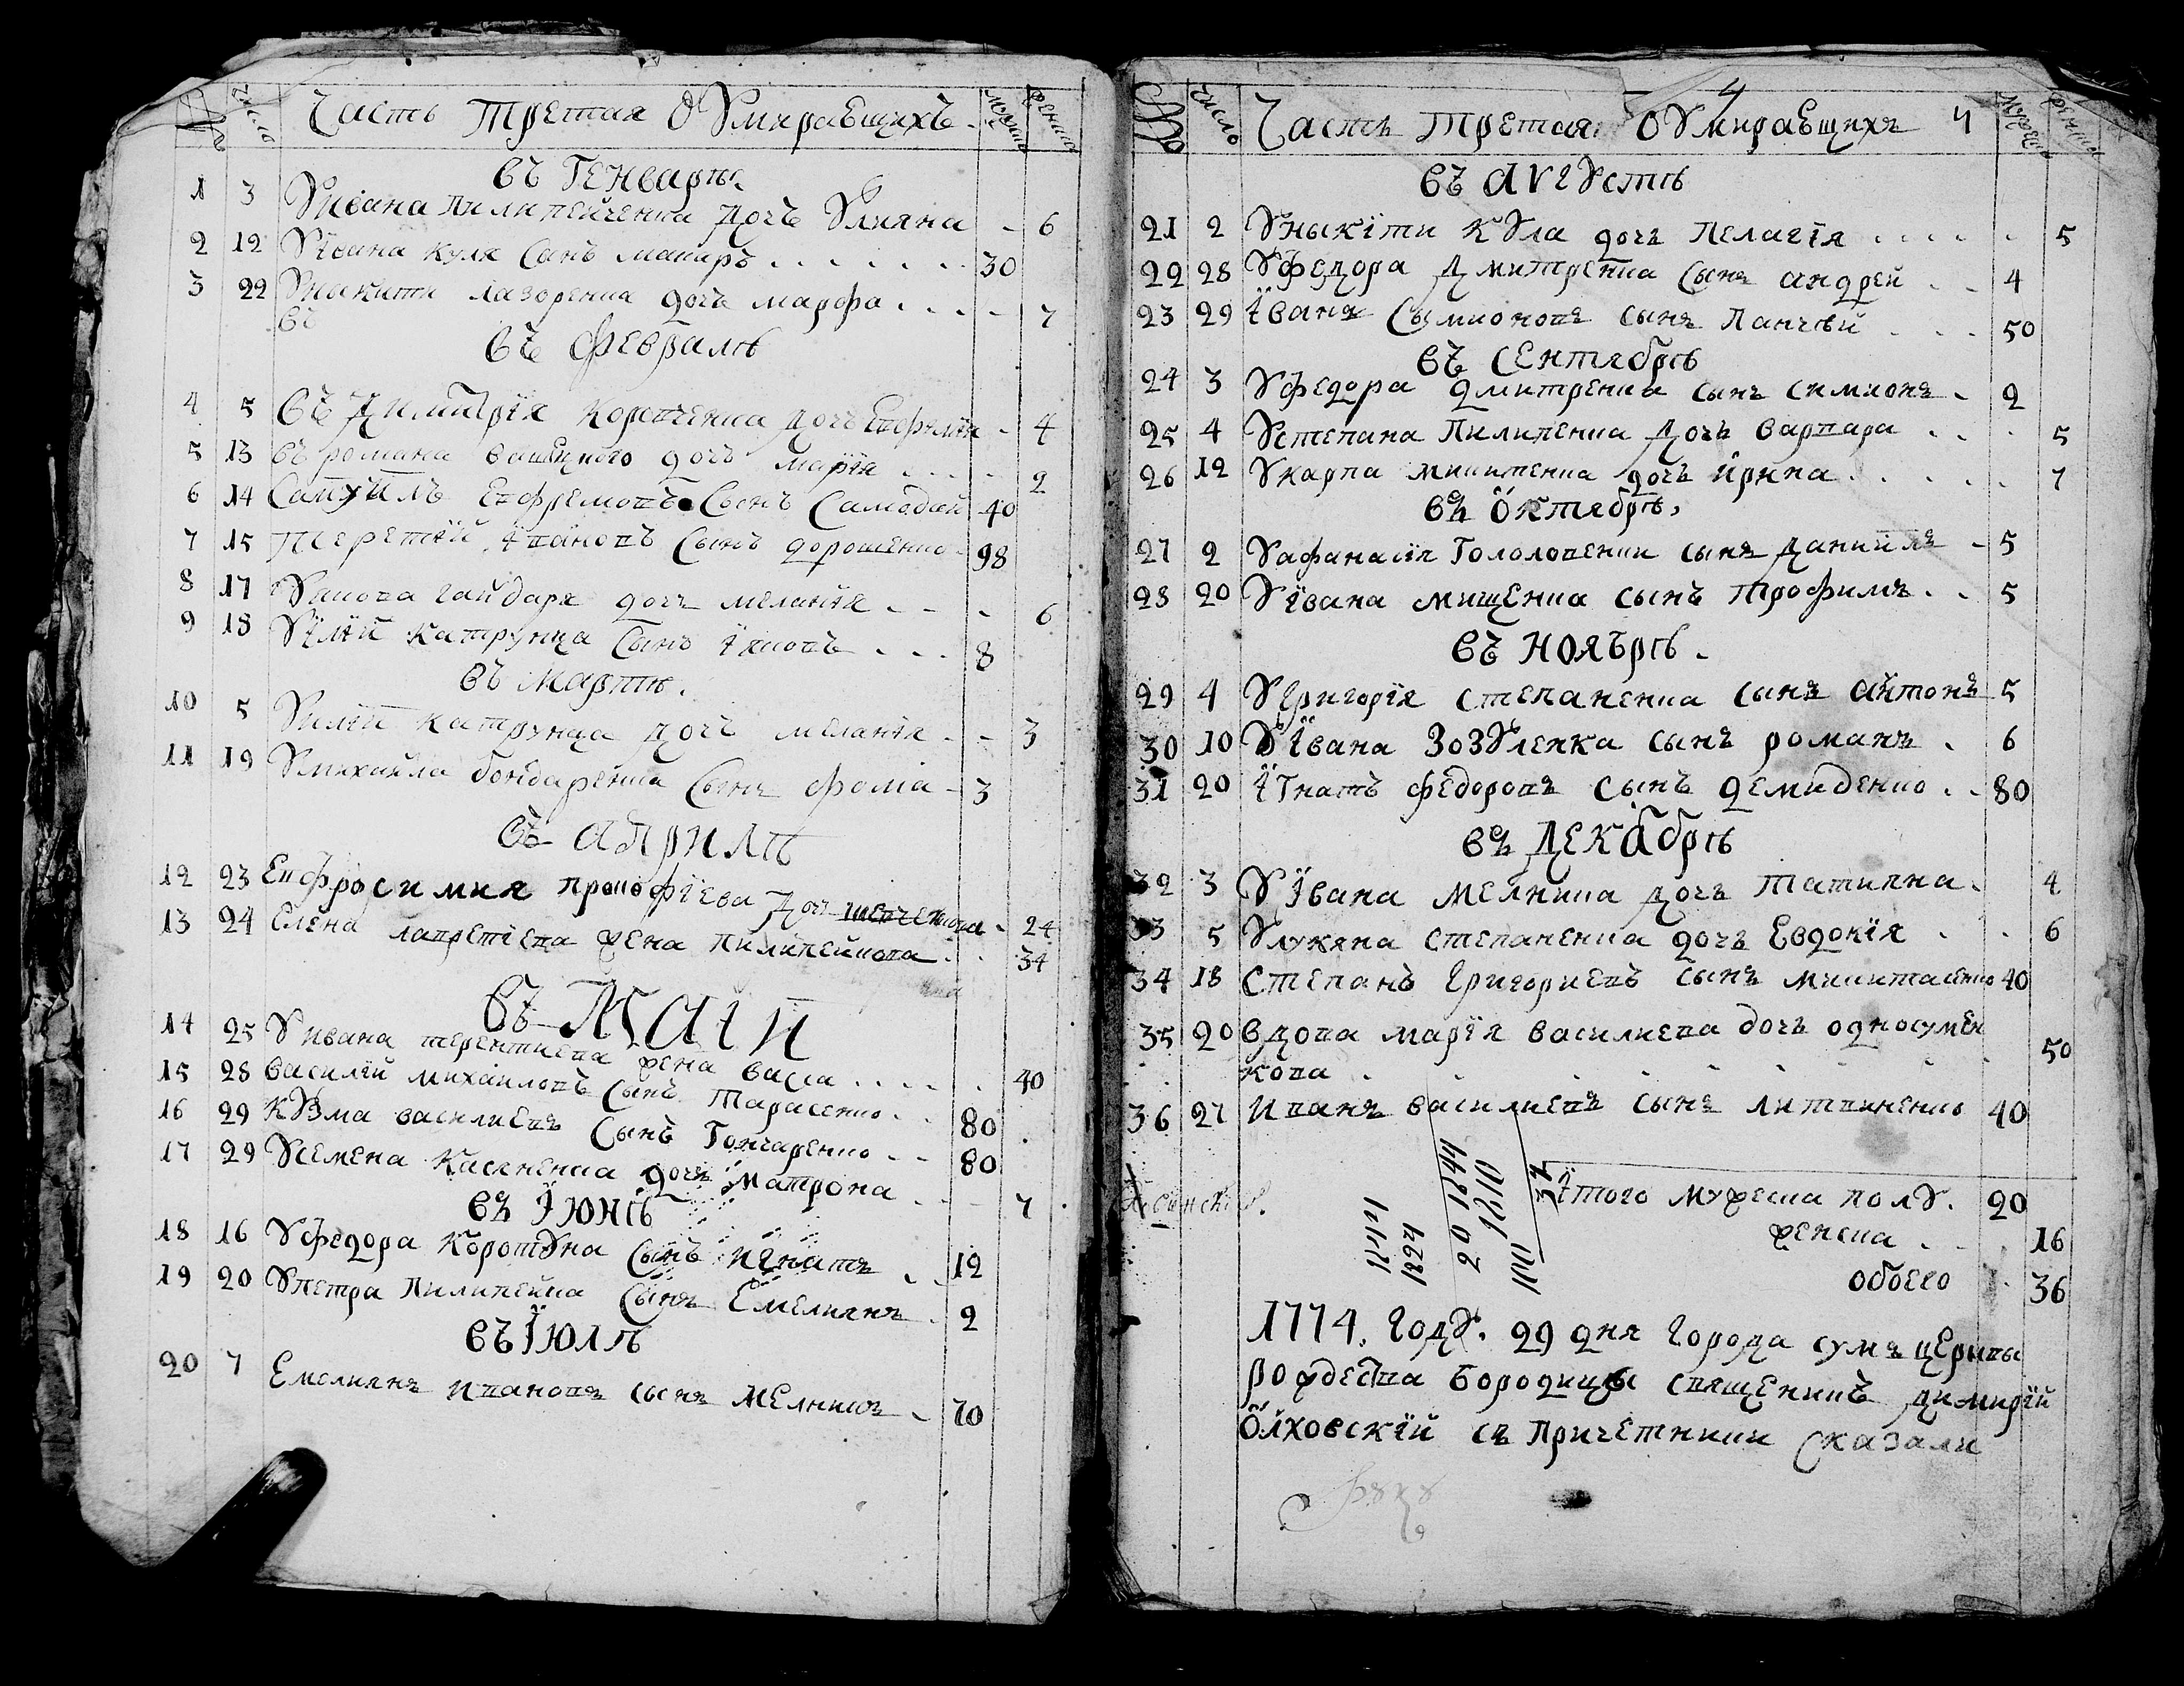 № число Часть третая О Умираевщихъ. мужеска женска
въ Генварѣ
1 3 Уивана Пилипейченка дочъ Улияна - 6
2 12 Уївана куля Сынъ макаръ . . . . . . . 30
3 22 Уныкити лазоренка дочъ марфа . . . . - 7
въ
въ февралѣ
4 5 въ Димитрїя Коропченка дочъ Евфимїя - 4
5 13 въ романа дочъ марїя . . . . 2
6 14 Самуилъ Ефремовъ Сынъ Самодай 40
7 15 Терентїй Ївановъ Сынъ дорошенко - 98
8 17 Уякова гайдаря дочъ меланїя - - - 6
9 18 Уїлїи катрунца Сынъ їяковъ . . . 8
въ мартѣ.
10 5 Уилїи катрунца дочъ меланїя - - 3
11 19 Умихаила бондаренка Сынъ фома - 3
въ априлѣ
12 23 Евфросимия прокофїева дочъ шевченкова - 24
13 24 Елена лаврентїева жена пилипейкова . . 34
въ Маїи
14 25 Уивана терентиева жена васса . . . . . 40
15 28 василїй михаиловъ Сынъ тарасенко . . 80
16 29 кУзма василиевъ Сынъ Гончаренко - - 80
17 29 Усемена Касяненка дочъ матрона - - 7
въ Їюнѣ
18 16 Уфедора КоротУна Сынъ игнатъ . . 12
19 20 Упетра Пилипейка Сынъ Емелиянъ . 2
въ Їюлѣ
20 7 Емелиянъ ивановъ сынъ Мелникъ - 70
4
№ число Часть третая О Умираевщихъ 4 мужеска женска
въ авгУстѣ
21 2 Уныкїти кУла дочъ пелагїя . . . . . 5
22 28 Уфедора дмитренка Сынъ андрей . . 4
23 29 Їванъ Сымионовъ сынъ Панчѣй . . . 50
въ Сентябрѣ
24 3 Уфедора дмитренка сынъ симионъ - 2
25 4 Устепана Пилипенка дочъ варвара . . . . 5
26 12 Укарпа микитенка дочъ ирина . . . . . 7
въ Октябрѣ,
27 2 Уафанасїя Гололобенки сынъ даниилъ - 5
28 20 Уївана мищенка сынъ трофимъ . . 5
въ Ноябрѣ.
29 4 Угригорїя степаненка сынъ антонъ 5
30 10 Уївана ЗозУленка сынъ романъ . 6
31 20 Їгнатъ федоровъ сынъ демиденко . . 80
въ Декабрѣ
32 3 УЇвана Мелника дочъ татияна . 4
33 5 Улукяна степаненка дочъ Евдокїя . . 6
34 18 Степанъ Григориевъ сынъ микитасенко 40
35 20 вдова марїя василиева дочъ односумен
кова . . . . . . . . 50
36 27 иванъ василиевъ сынъ литвиненко 40
Їтого мужеска полУ. 20
женска . . . 16
обоего 36
1774. ГодУ. 29 дня Города сумъ церквы
рождества бородицы священикъ димирїй
Олховскїй съ причетники сказали